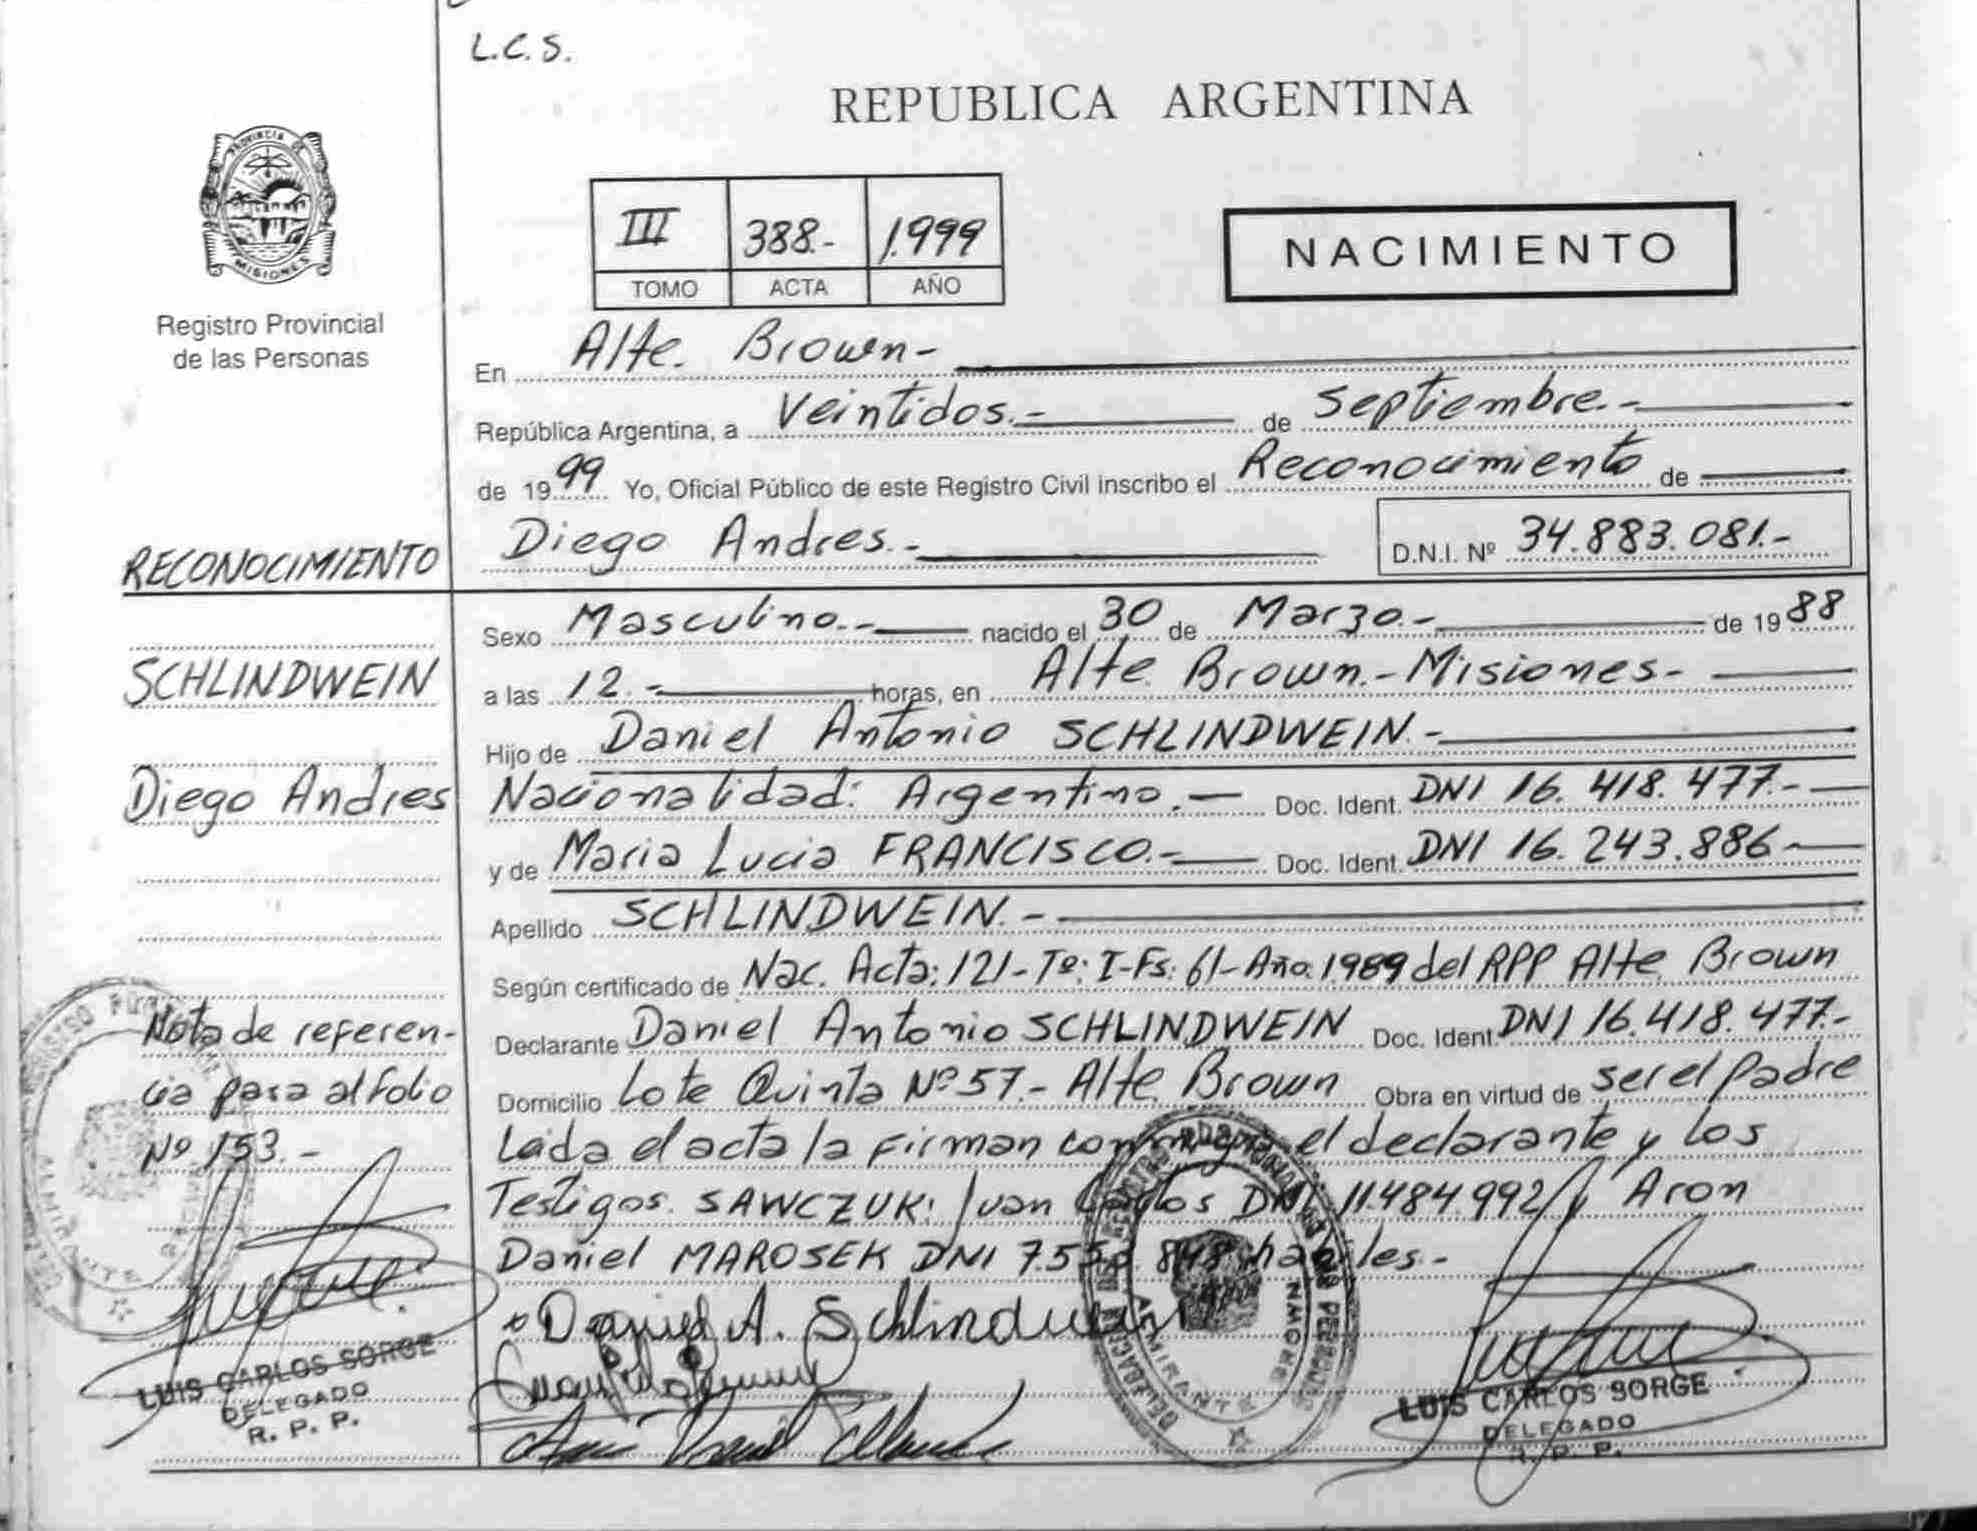 L.C.S.
REPUBLICA ARGENTINA
PROVINCIA DE
MISIONES
Registro Provincial
de las Personas
III 388.- 1.999
TOMO ACTA AÑO
NACIMIENTO
En Alte. Brown-
República Argentina, a Veintidos.- de Septiembre.-
de 1999 Yo, Oficial Público de este Registro Civil inscribo el Reconocimiento de
Diego Andres.- D.N.I. Nº 34.883.081.-
RECONOCIMIENTO
SCHLINDWEIN
Diego Andres
Nota de referen-
cia para al folio
Nº 153.-
LUIS CARLOS SORGE
DELEGADO
R. P. P.
Sexo Masculino.- nacido el 30 de Marzo.- de 1988
a las 12.- horas, en Alte. Brown.-Misiones-
Hijo de Daniel Antonio SCHLINDWEIN.-
Nacionalidad: Argentino.- Doc. Ident. DNI 16.418.477.-
y de Maria Lucia FRANCISCO.- Doc. Ident. DNI 16.243.886-
Apellido SCHLINDWEIN.-
Según certificado de Nac. Acta: 121-Tº: I-Fs: 61-Año: 1989 del RPP Alte. Brown
Declarante Daniel Antonio SCHLINDWEIN Doc. Ident. DNI 16.418.477.-
Domicilio Lote Quinta Nº 57.- Alte. Brown Obra en virtud de ser el padre
Leida el acta la Firman conmigo el declarante y los
Testigos. SAWCZUK: Juan Carlos DNI 11.484.992 y Aron
Daniel MAROSEK DNI habiles.-
Daniel A. Schlindwein
LUIS CARLOS SORGE
DELEGADO
R. P. P.